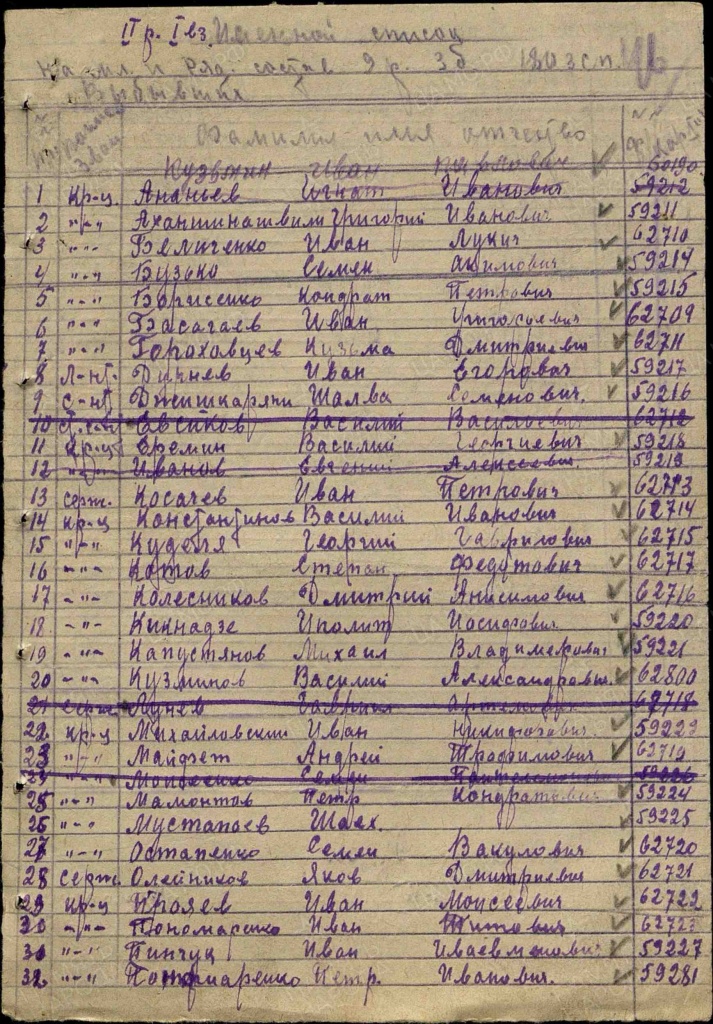 II гр. I вз. Именной список
на мл. и ряд. состав 9 р. 3 б 180 з сп.
Выбывший
Фамилия имя отчество
Кузьмин Иван Павлович 60190
1 кр-ц. Ананьев Игнат Иванович 59212
2 -"- Аханашвили Григорий Иванович 59211
3 -"- Беличенко Иван Лукич 62710
4 -"- Бузько Семен Акимович 59214
5 -"- Борисенко Кондрат Петрович 59215
6 -"- Басагаев Иван 62709
7 -"- Гороховцев Кузьма Дмитриевич 62711
8 л-нт. Иван Егорович 59217
9 с-нт Джишкариани Шалва Семенович. 59216
10 Евсиков Василий Васильевич 62712
11 кр-ц Еремин Василий Георгиевич 59218
12 -"- Иванов Евгений Алексеевич. 59219
13 серж. Косачев Иван Петрович 62713
14 кр-ц Константинов Василий Иванович 62714
15 -"- Георгий Гаврилович 62715
16 -"- Котов Степан Федотович 62717
17 -"- Колесников Дмитрий Анисимович 62716
18 -"- Кикнадзе Иполит Иосифович 59220
19 -"- Капустянов Михаил Владимирович 59221
20 -"- Кузминов Василий Александрович. 62800
21 серж. Лунев Гаврил Артемович 62718
22 кр-ц Михайловский Иван Никифорович. 59223
23 -"- Майфет Андрей Трофимович 62719
24 -"- Моисеенко Семен 59226
25 -"- Мамонтов Петр Кондратович 59224
26 -"- Мустапаев Шаех. 59225
27 -"- Остапенко Семен Вакулович 62720
28 серж. Олейников Яков Дмитриевич 62721
29 кр-ц Прояев Иван Моисеевич 62722
30 -"- Пономаренко Иван Титович 62723
31 -"- Пинчук Иван 59227
32 -"- Петр. Иванович. 59281